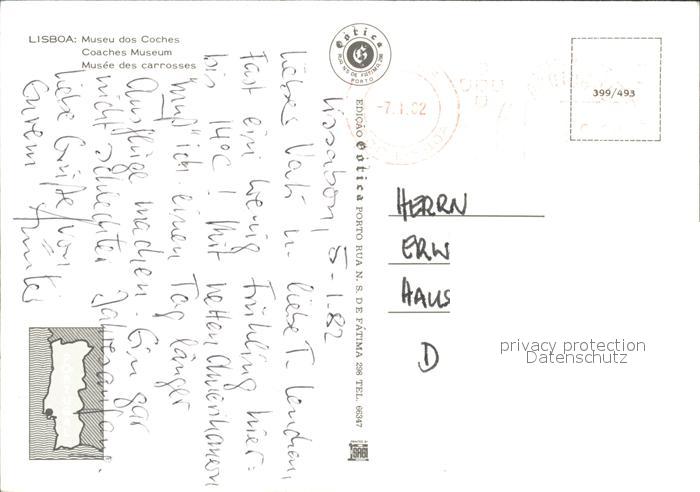 LISBOA: Museu dos Coches
Coaches Museum
Musée des carrosses
Lissabon, 5.1.82
Liebes Vati u. liebe T. Lendien,
Fast ein wenig Frühling hier:
bis 14°C! Mit netten Amerikanern
"muß" ich einen Tag länger
Ausflüge machen. Ein gar
nicht schlechter Jahresanfang.
Liebe Grüße von
Eurem
Gótica
RUA N. S. DE FÁTIMA, 298
PORTO
EDIÇÃO Gótica PORTO RUA N. S. DE FÁTIMA 298 TEL. 66347
-7.1.82
399/493
HERRN
ERW
HAUS
D
privacy protection
Datenschutz